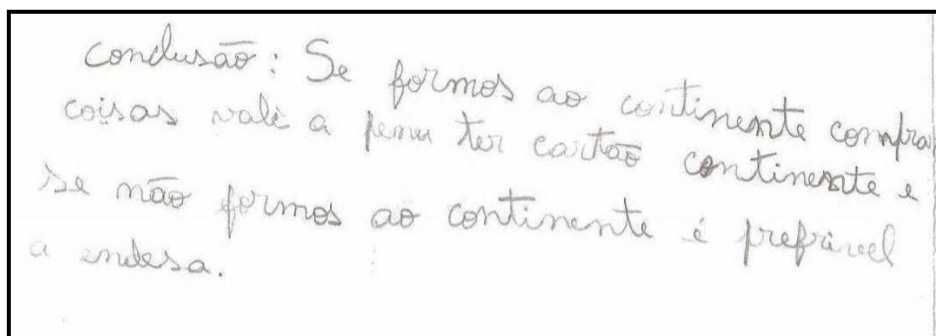 Conclusão: Se formos ao continente compra
coisas vale a pena ter cartão continente e
se não formos ao continente é prefrivel
a endesa.